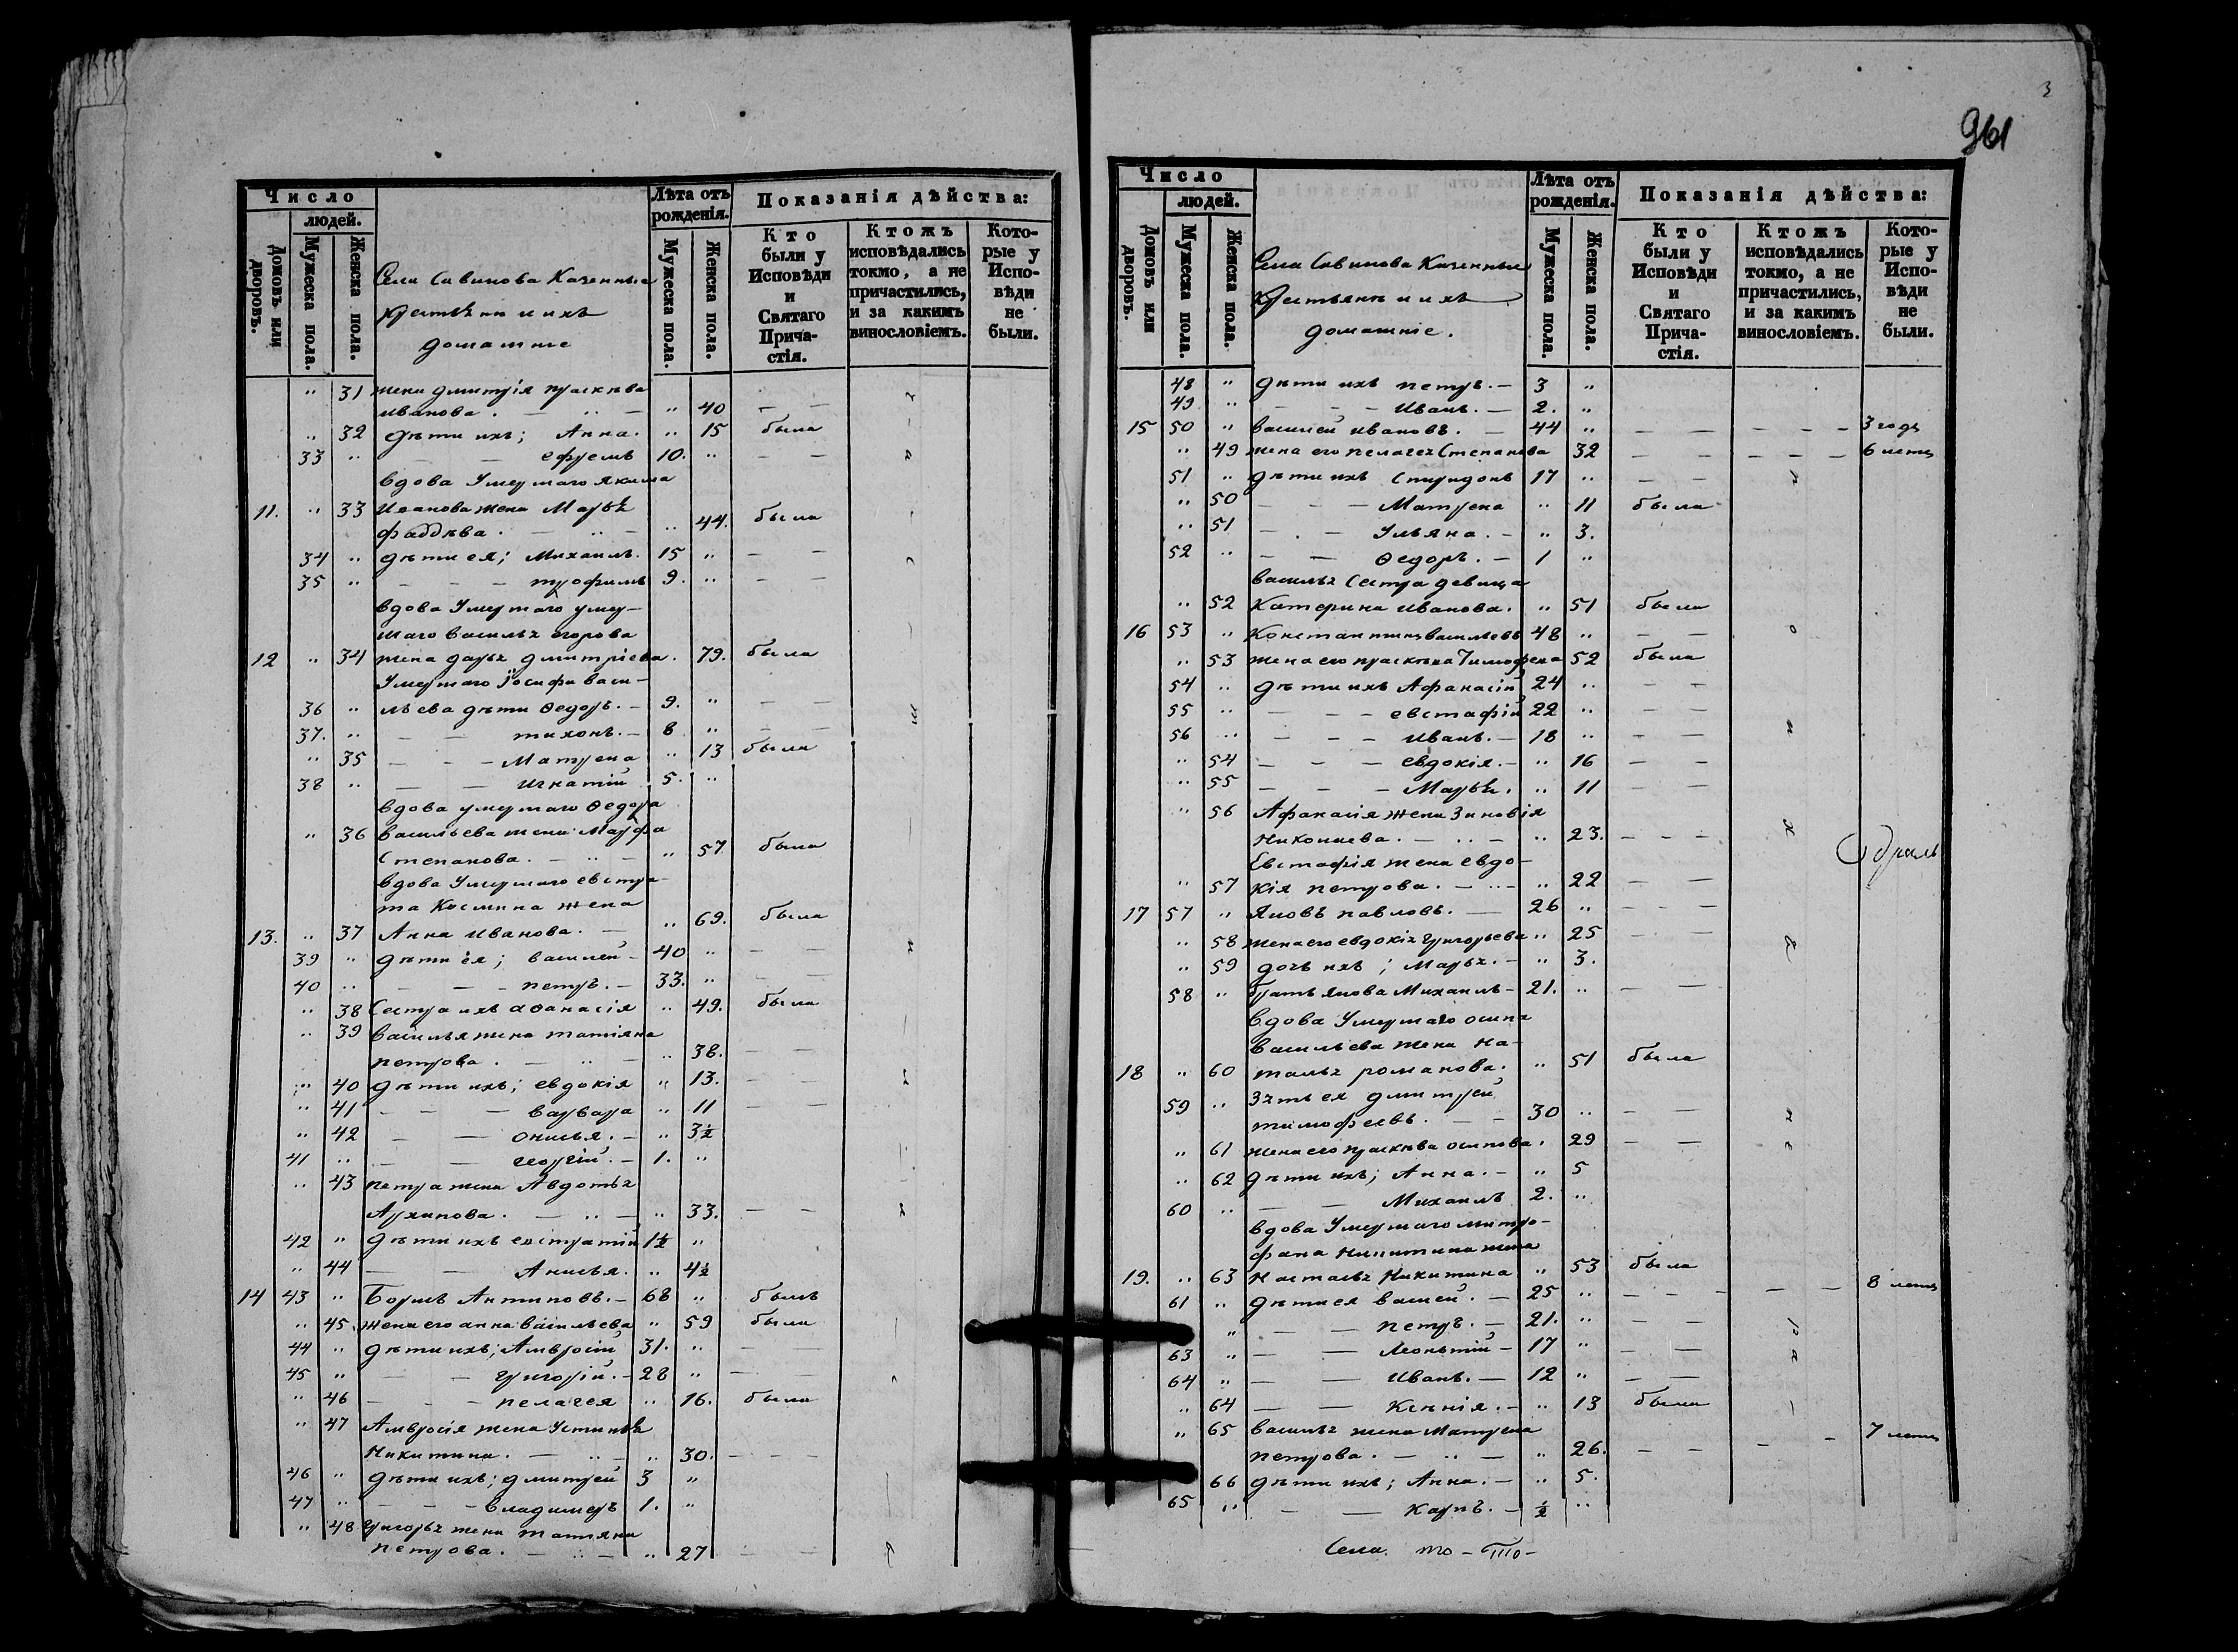 Число
людей.
Лѣта отъ рожденія.
Показанія дѣйства:
Домовъ или дворовъ.
Мужеска пола.
Женска пола.
Села Савинова Казенныя
крестьяни и ихъ
домашніе
Мужеска пола.
Женска пола.
Кто были у Исповѣди и Святаго Прича-стія.
Ктожъ исповѣдались токмо, а не причастились, и за какимъ винословіемъ.
Кото-рые у Испо-вѣди не были.
" 31 жена дмитрія праскѣва
иванова. — " — " 40 — —
" 32 дѣти ихъ; Анна. " 15 была
33 " — — ефремъ 10. " — —
вдова Умершаго якима
11. " 33 Иванова жена Марьѣ
фаддѣва. — " — " 44. была
34 " дѣти ея; Михаилъ. 15 " — —
35 " — — — трофимъ 9. " — —
вдова Умершаго умер-
шаго василья егорова
12 " 34 жена дарья дмитріева. 79. была
Умершаго іосифа васи-
36 " льева дѣти Ѳедоръ. — 9. " — —
37. " — — тихонъ. — 8 " — —
" 35 — — — Матрена " 13 была
38 " — — игнатій 5. "
вдова умершаго Ѳедора
" 36 васильева жена Марфа
Степанова. — " — " 57 была
вдова Умершаго евстра-
та Косьмина жена
13. " 37 Анна иванова. — " 69. была
39 " дѣти ея; василей — 40 " — —
40 " — — — петръ. — 33. " — —
" 38 Сестра ихъ аѳанасія " 49. была
" 39 василья жена татіяна
петрова. — " — " 38. — —
" 40 дѣти ихъ; евдокія " 13. — —
" 41 — — — варвара " 11 — —
" 42 — — онисья. — " 3½
41 " — — георгій. — 1. "
" 43 петра жена Авдотья
Архипова. — " — " 33. — —
42 " дѣти ихъ евстратій 1½ "
" 44 — — Анисья. " 4½
14 43 " Борисъ Антиповъ. — 68 " былъ
" 45. жена его анна васильева " 59 была
44 " дѣти ихъ; Амвросій 31. " — —
45 " — — григорій. — 28 " — —
" 46 — — — пелагея " 16. была
" 47 Амвросія жена Устинья
Никитина. — " — " 30. — — —
46 " дѣти ихъ; дмитрей 3 "
47 " — — — владимеръ 1. "
" 48 григорья жена татіяна
петрова. — " — " 27 — —
3
961
Число
людей.
Лѣта отъ рожденія.
Показанія дѣйства:
Домовъ или дворовъ.
Мужеска пола.
Женска пола.
Села Савинова Казенныя
крестьянѣ и ихъ
домашніе.
Мужеска пола.
Женска пола.
Кто были у Исповѣди и Святаго Прича-стія.
Ктожъ исповѣдались токмо, а не причастились, и за какимъ винословіемъ.
Кото-рые у Испо-вѣди не были.
48 " дѣти ихъ петръ. — 3 "
49 " — — — иванъ. — 2. "
15 50 " василей ивановъ. — 44 " — — — — — 3 годъ
" 49 жена его пелагея Степанова 32 — — — — — 6 летъ
51 " дѣти ихъ Спиридонъ 17 " — —
" 50 — — — Матрена " 11 была
" 51 — — Ульяна. — " 3.
52 " — — Ѳедоръ. — 1 "
василья Сестра девица
" 52 Катерина иванова. " 51 была
16 53 " Константинъ васильевъ 48 " — —
" 53 жена его праскѣва Тимофева 52 была
54 " дѣти ихъ Афанасій 24 " — —
55 " — — — евстафій 22 " — —
56 " — — — иванъ. — 18 " — —
" 54 — — — евдокія. — " 16 — —
" 55 — — — Марья. " 11 — —
" 56 Афанасія жена Зиновія
Николаева. — " — " 23. — — —
Евстафія жена евдо-
" 57 кія петрова. — " — " 22 — —
17 57 " Яковъ павловъ. — 26 " — — —
" 58 жена его евдокія григорьева " 25 — —
" 59 дочь ихъ; Марья. — " 3.
58 " братъ якова Михаилъ — 21. " — —
вдова Умершаго осипа
васильева жена На-
18 " 60 талья романова. " 51 была
59 " зять ея дмитрей
тимофеевъ. — — 30 " — —
" 61 жена его праскѣва осипова. 29 — —
" 62 дѣти ихъ; Анна. — " 5
60 " — — Михаилъ 2. "
вдова Умершаго митро-
фана Никитина жена
19. " 63 Настасья Никитина " 53 была
61 " дѣти ея васлей. — 25 " — — — — — 8 летъ
" — — петръ. — 21. " — —
63 " — — Леонтій — 17 " — —
64 " — — иванъ. — 12 " — —
" 64 — — Ксѣнія. — " 13 была
" 65 василья жена Матрена 7 летъ
петрова. — " — " 26. — — — —
" 66 дѣти ихъ; Анна. — " 5.
65 " — — карпъ. — ½ "
Села